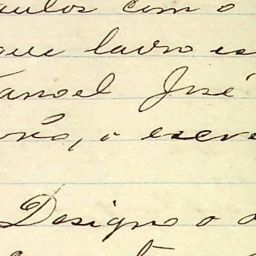 aulos com o
que lavro es
anoel José
o, o escre
Designo o d